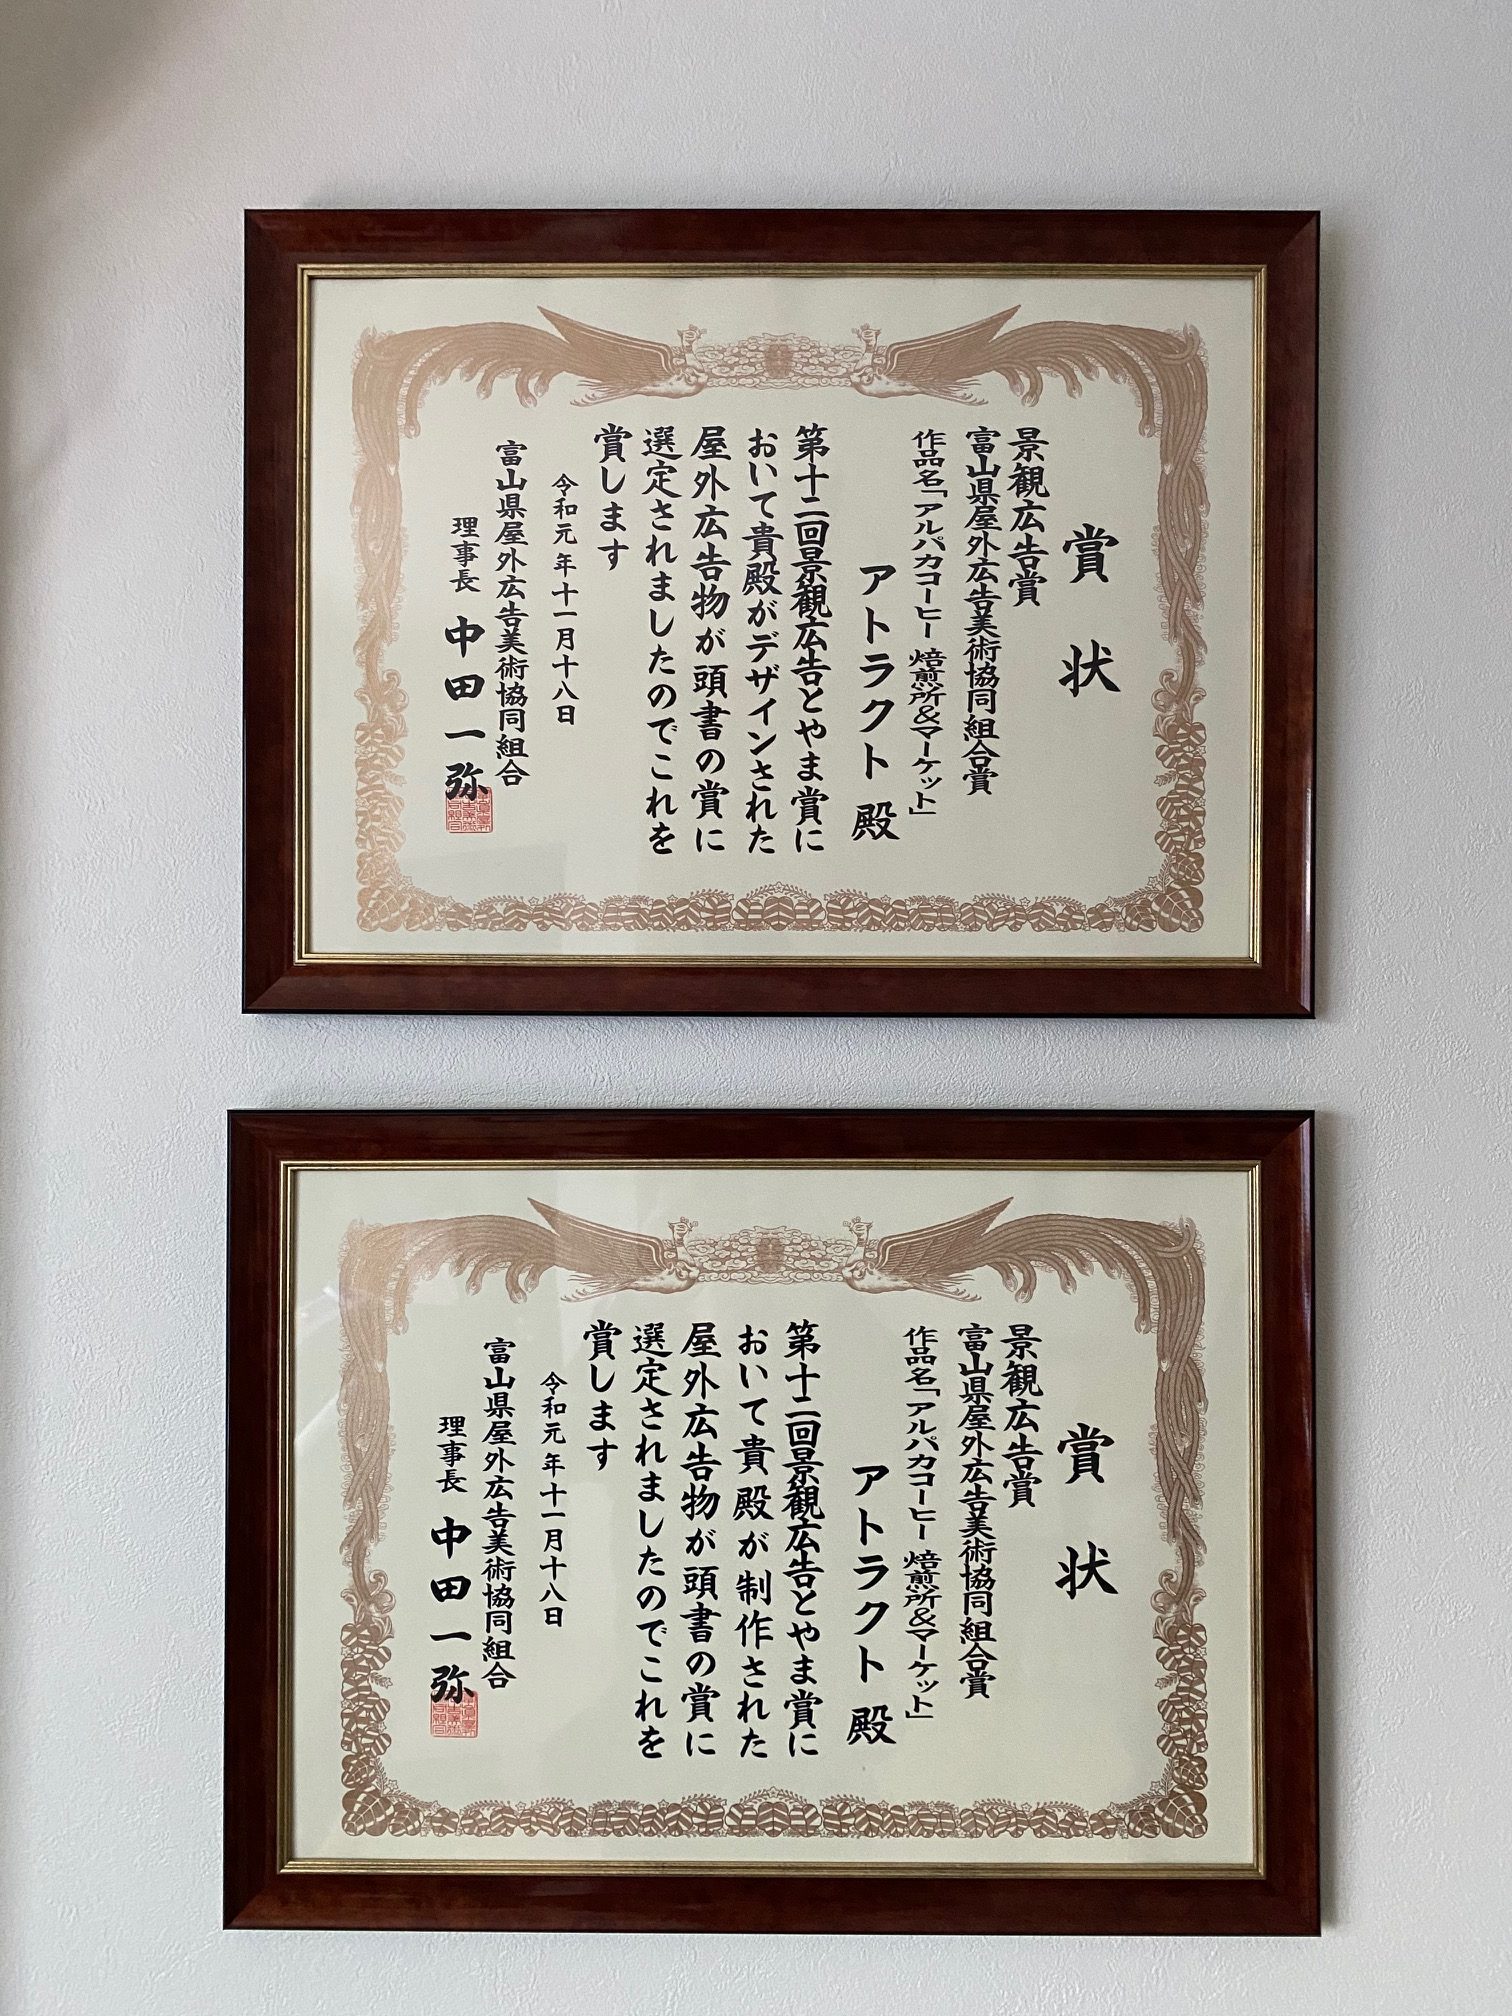 賞状
景観広告賞
富山県屋外広告美術協同組合賞
作品名「アルパカコーヒー 焙煎所&マーケット」
アトラクト 殿
第十二回景観広告とやま賞に
おいて貴殿がデザインされた
屋外広告物が頭書の賞に
選定されましたのでこれを
賞します
令和元年十一月十八日
富山県屋外広告美術協同組合
理事長 中田一弥
賞状
景観広告賞
富山県屋外広告美術協同組合賞
作品名「アルパカコーヒー 焙煎所&マーケット」
アトラクト 殿
第十二回景観広告とやま賞に
おいて貴殿が制作された
屋外広告物が頭書の賞に
選定されましたのでこれを
賞します
令和元年十一月十八日
富山県屋外広告美術協同組合
理事長 中田一弥